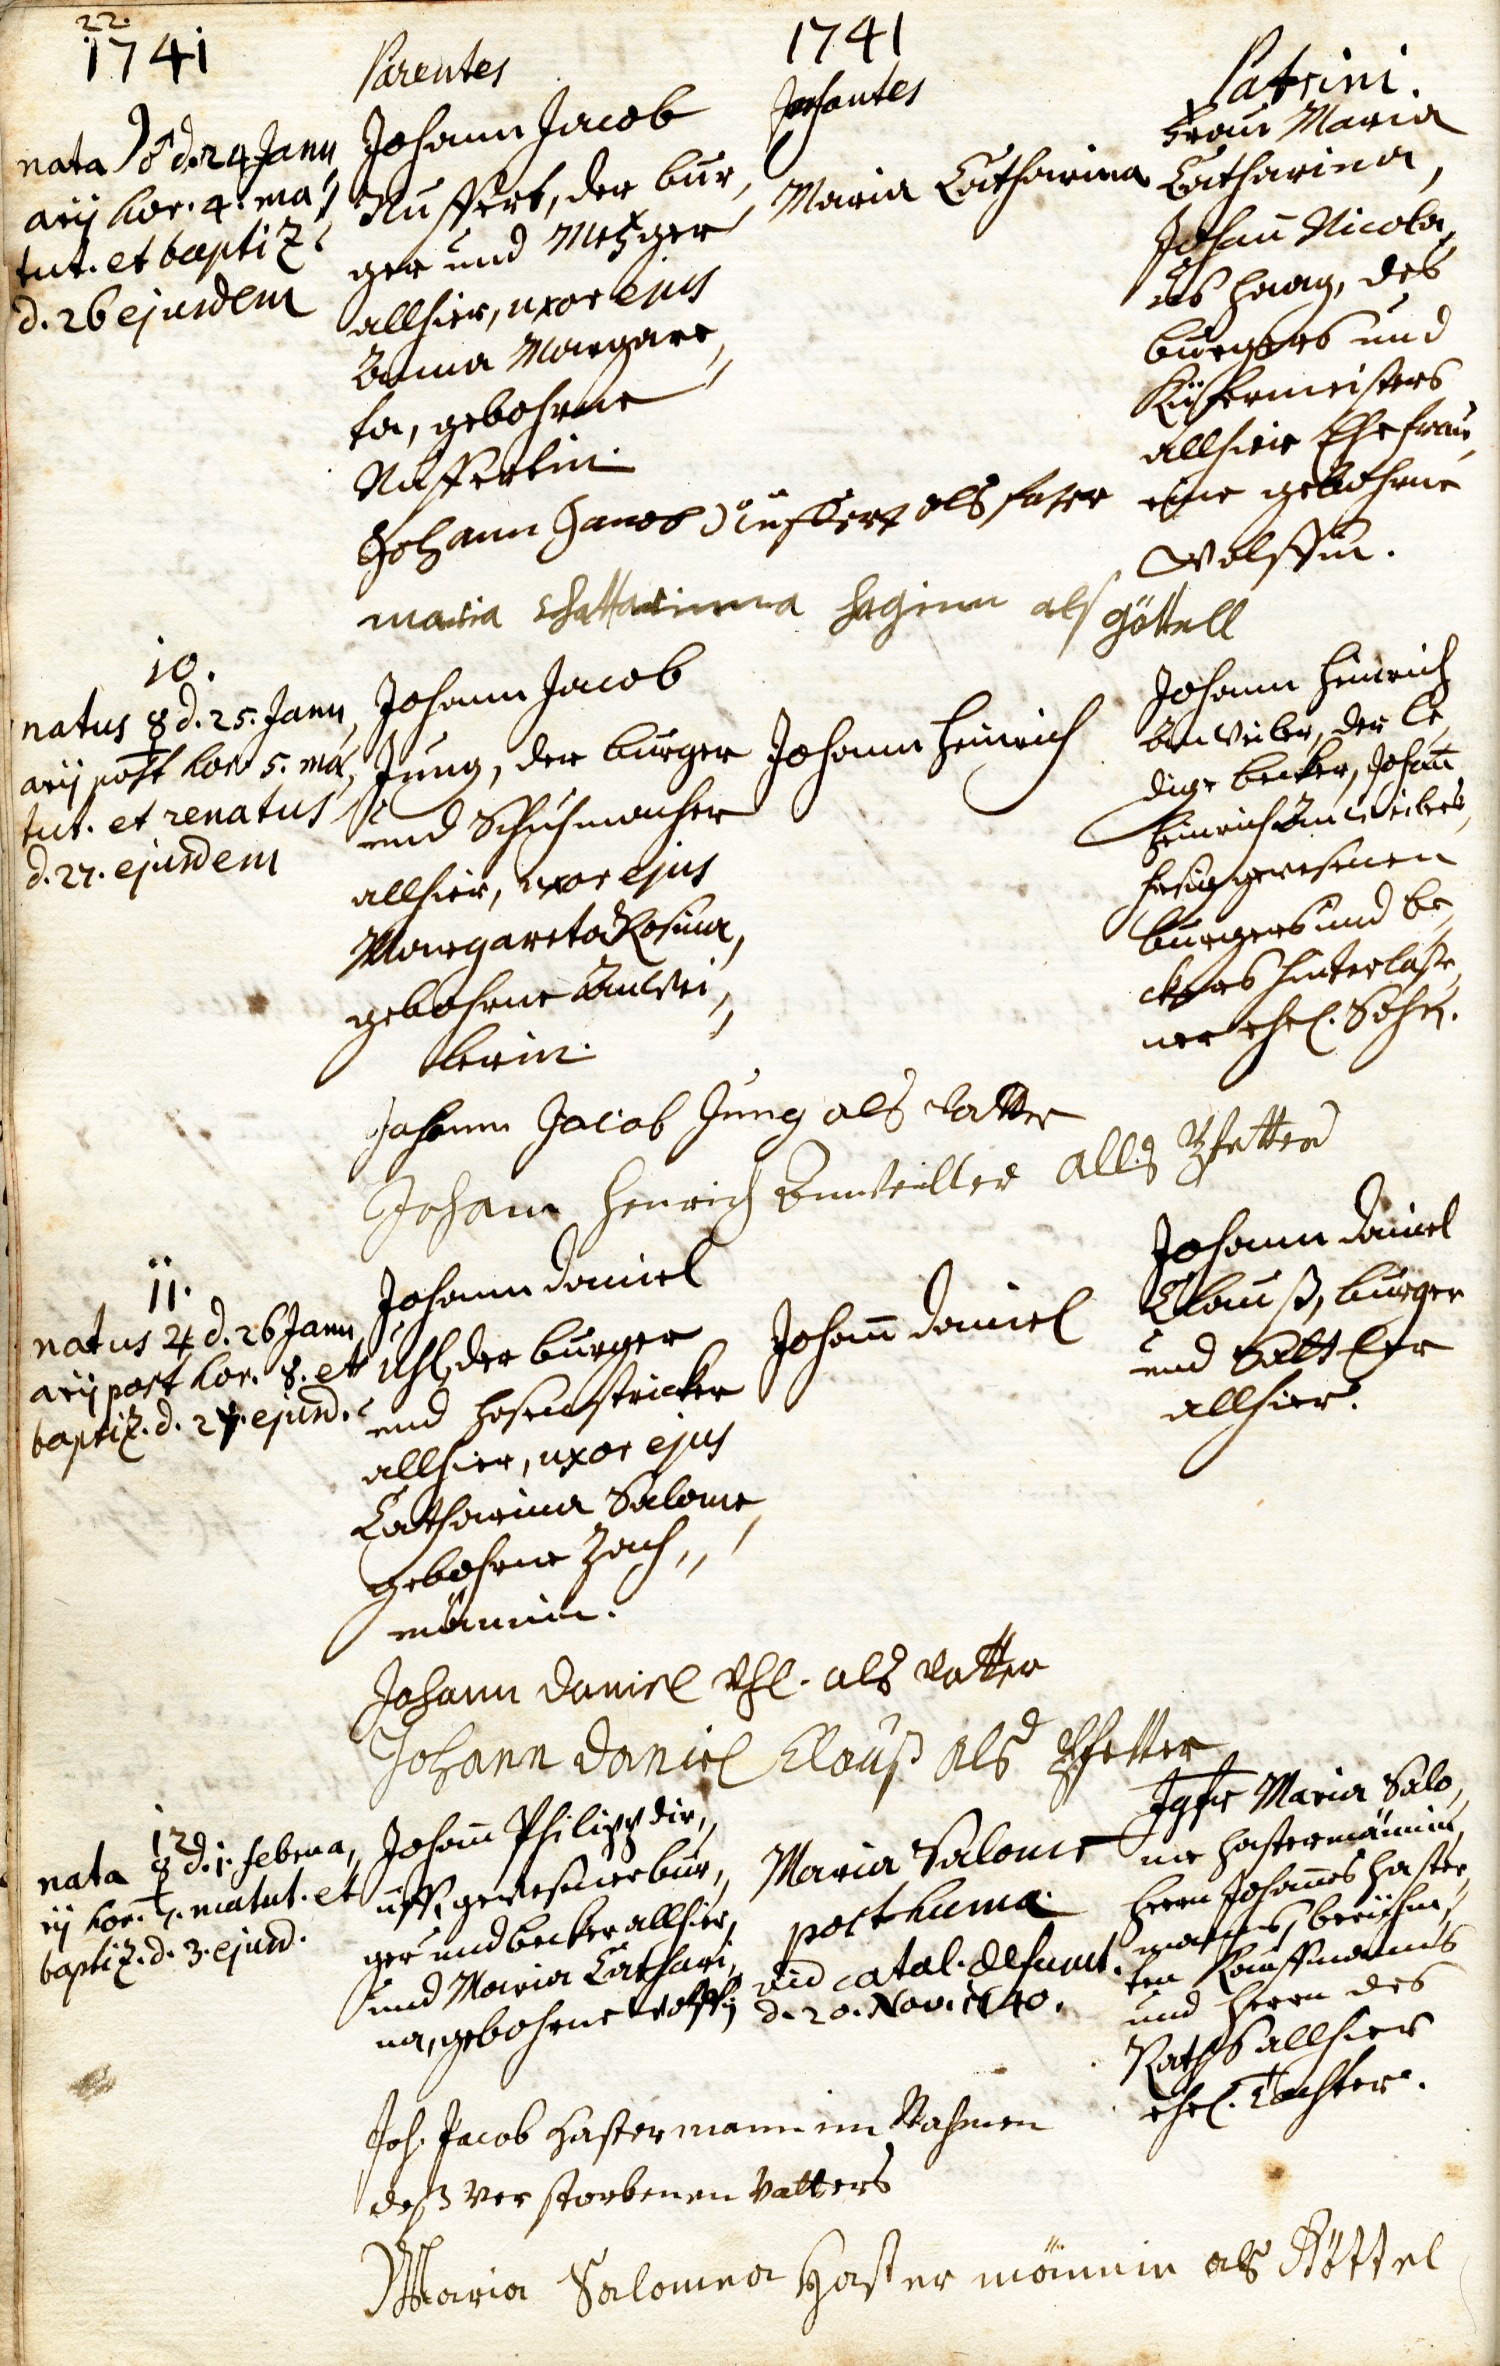 22.
1741
Parentes
1741
Infantes
Patrini.
9.
nata ♂ d. 24 Janu
arij hor. 4. ma
tut. et baptiz.
d. 26 ejusdem
Johann Jacob
Nuffert, der bur,
ger und Metzger
allhier, uxor ejus
Anna Margare,
ta, gebohrne
Nuffertin.
Maria Catharina
Frau Maria
Catharina,
Johann Nicola,
us Haag, des
burgers und
Küfermeisters
allhier Ehefrau,
eine gebohrne
Wolffin.
Johann Jacob Nuffert als fater
maria chattarinna haginn als göttell
10.
natus ☿ d. 25. Janu,
arij post hor. 5. ma,
tut. et renatus
d. 27. ejusdem
Johann Jacob
Jung, der burger
und Schuhmacher
allhier, uxor ejus
Margareta Rosina,
gebohrne Anwei,
lerin.
Johann Heinrich
Johann Heinrich
Anweiler, der le,
dige becker, Johann
Heinrich Anweilers,
gewesenen
burgers und be,
ckers hinterlaße,
ner ehel. Sohn.
Johann Jacob Jung als vatter
Johann Henrich Annweiller alls Pfetter
11.
natus ♃ d. 26 Janu,
arij post hor. 8. et
baptiz. d. 27. ejusd.
Johann Daniel
Uhl, der burger
und hosenstricker
allhier, uxor ejus
Catharina Salome,
gebohrne Zach,
männin.
Johann Daniel
Johann Daniel
Clauß, burger
und Sattler
allhier.
Johann Daniel Uhl. als vatter
Johann Daniel Clauß als Pfetter
12
nata ☿ d. 1. Februa,
rij hor. 7. matut. et
baptiz. d. 3. ejusd.
Johann Philipp
gewesener bur,
ger und becker allhier,
und Maria Cathari,
na, gebohrne Wolffin
Maria Salome
posthuma
vid catal. defunct.
d. 20. Nov. 1740.
Jgfr Maria Salo,
me Hastermännin,
Herrn Johannes Haster,
manns, berühm,
ten Kauffmanns
und Herrn des
Raths allhier
ehel. Tochter.
Joh. Jacob Hastermann im Nahmen
deß verstorbenen Vatters
Maria Salomea Hastermännin als Göttel